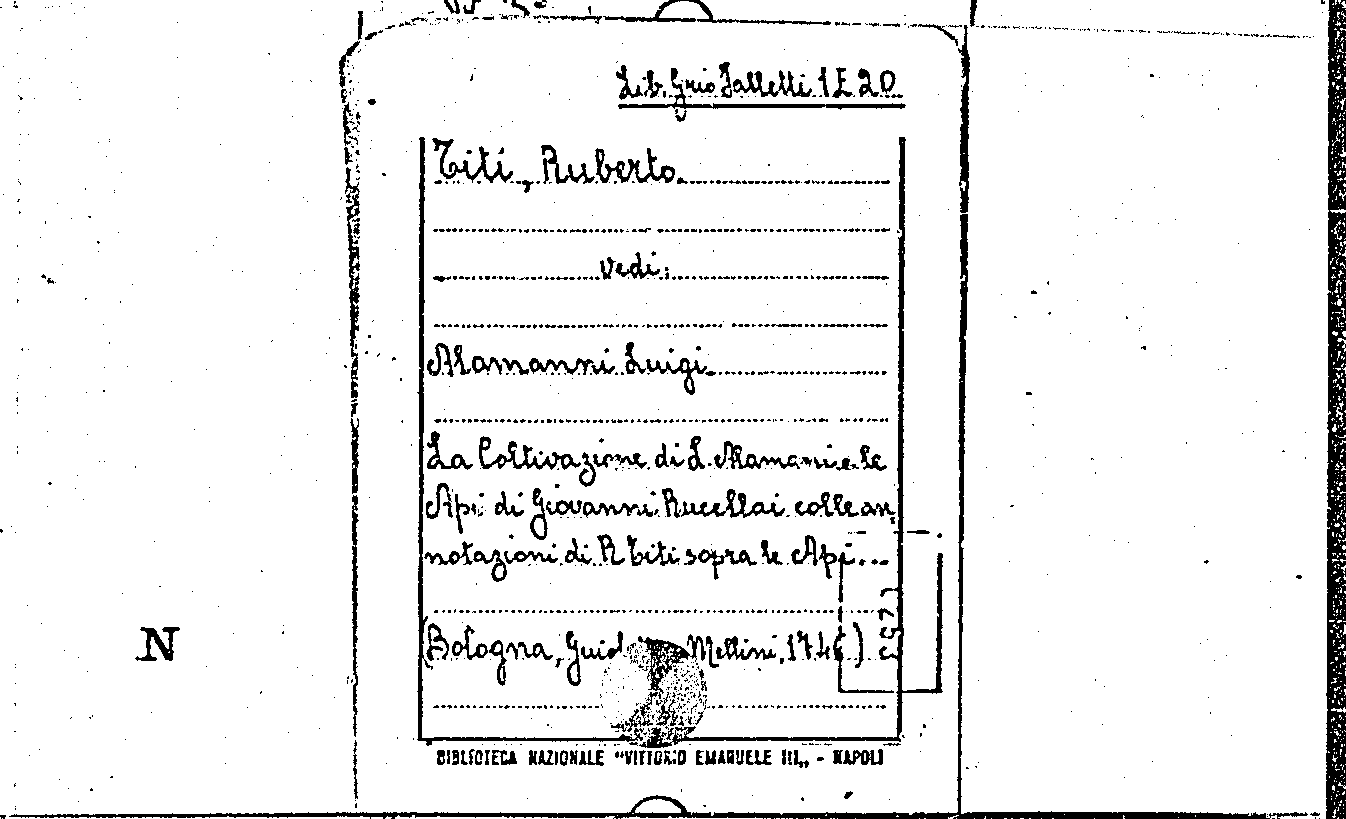 Lib. Grio Jalletti 1 E 20
Titi, Ruberto.
vedi:
Alamanni Luigi.
La Coltivazione di L. Alamanni e le
Api di Giovanni Rucellai colle an,
notazioni di R Titi sopra le Api...
(Bologna, Mellini, 1746)
N
BIBLIOTECA NAZIONALE "VITTORIO EMANUELE III„ - NAPOLI